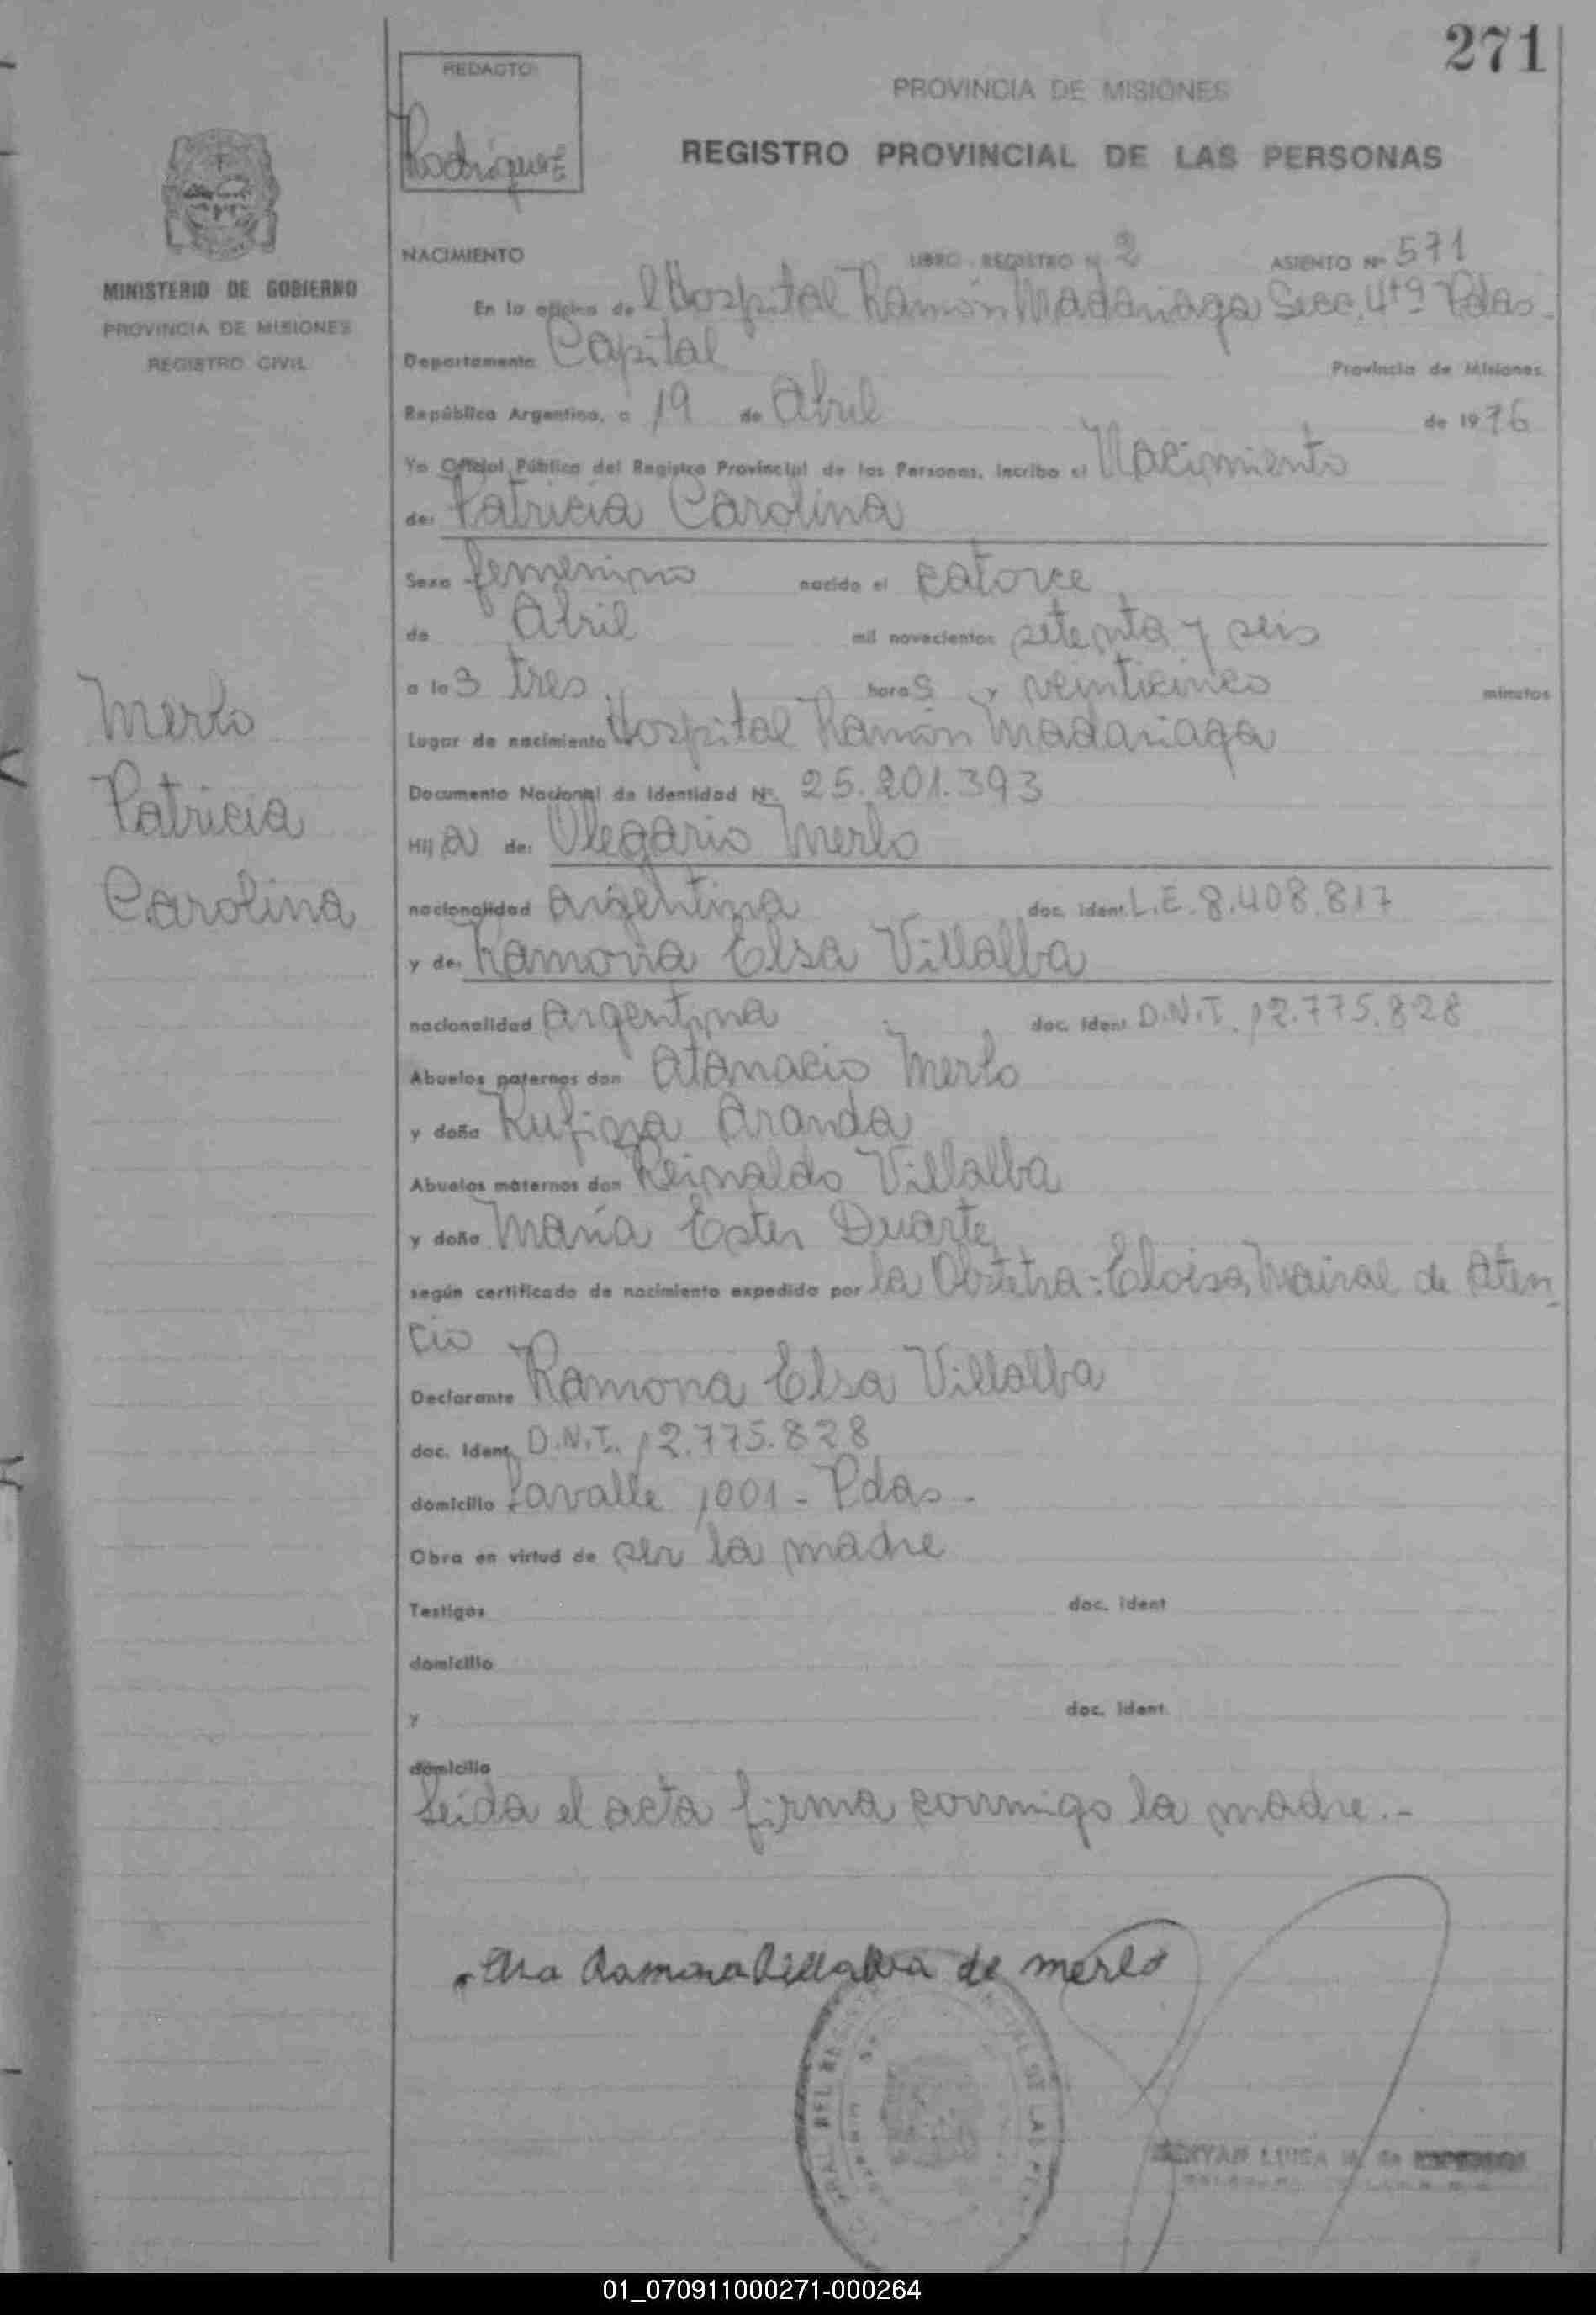 271
REDACTO
Rodríguez
PROVINCIA DE MISIONES
REGISTRO PROVINCIAL DE LAS PERSONAS
MINISTERIO DE GOBIERNO
PROVINCIA DE MISIONES
REGISTRO CIVIL
Merlo
Patricia
Carolina
NACIMIENTO LIBRO - REGISTRO Nº 2 ASIENTO Nº 571
En la oficina del Hospital Ramón Madariaga Secc. 4ta Pdas.
Departamento Capital Provincia de Misiones
República Argentina, a 19 de Abril de 1976
Yo Oficial Público del Registro Provincial de las Personas, inscribo el Nacimiento
de: Patricia Carolina
Sexo femenino nacido el catorce
de Abril mil novecientos setenta y seis
a las tres horas y veinticinco minutos
Lugar de nacimiento Hospital Ramón Madariaga
Documento Nacional de Identidad Nº 25.201.393
Hija de: Olegario Merlo
nacionalidad Argentina doc. ident. L.E. 8.408.817
y de: Ramona Elsa Villalba
nacionalidad Argentina doc. ident D.N.I. 12.775.828
Abuelos paternos don Atanacio Merlo
y doña Rufina Aranda
Abuelos maternos don Reinaldo Villalba
y doña María Ester Duarte
según certificado de nacimiento expedido por la Obstetra: Eloisa Mairal de Aten
cio
Declarante Ramona Elsa Villalba
doc. Ident. D.N.I. 12.775.828
domicilio Lavalle 1001 - Pdas.
Obra en virtud de ser la madre
Testigos doc. ident
domicilio
y doc. Ident.
domicilio
Leída el acta firma conmigo la madre.-
Elsa Ramona Villalba de merlo
LUISA
01_070911000271-000264